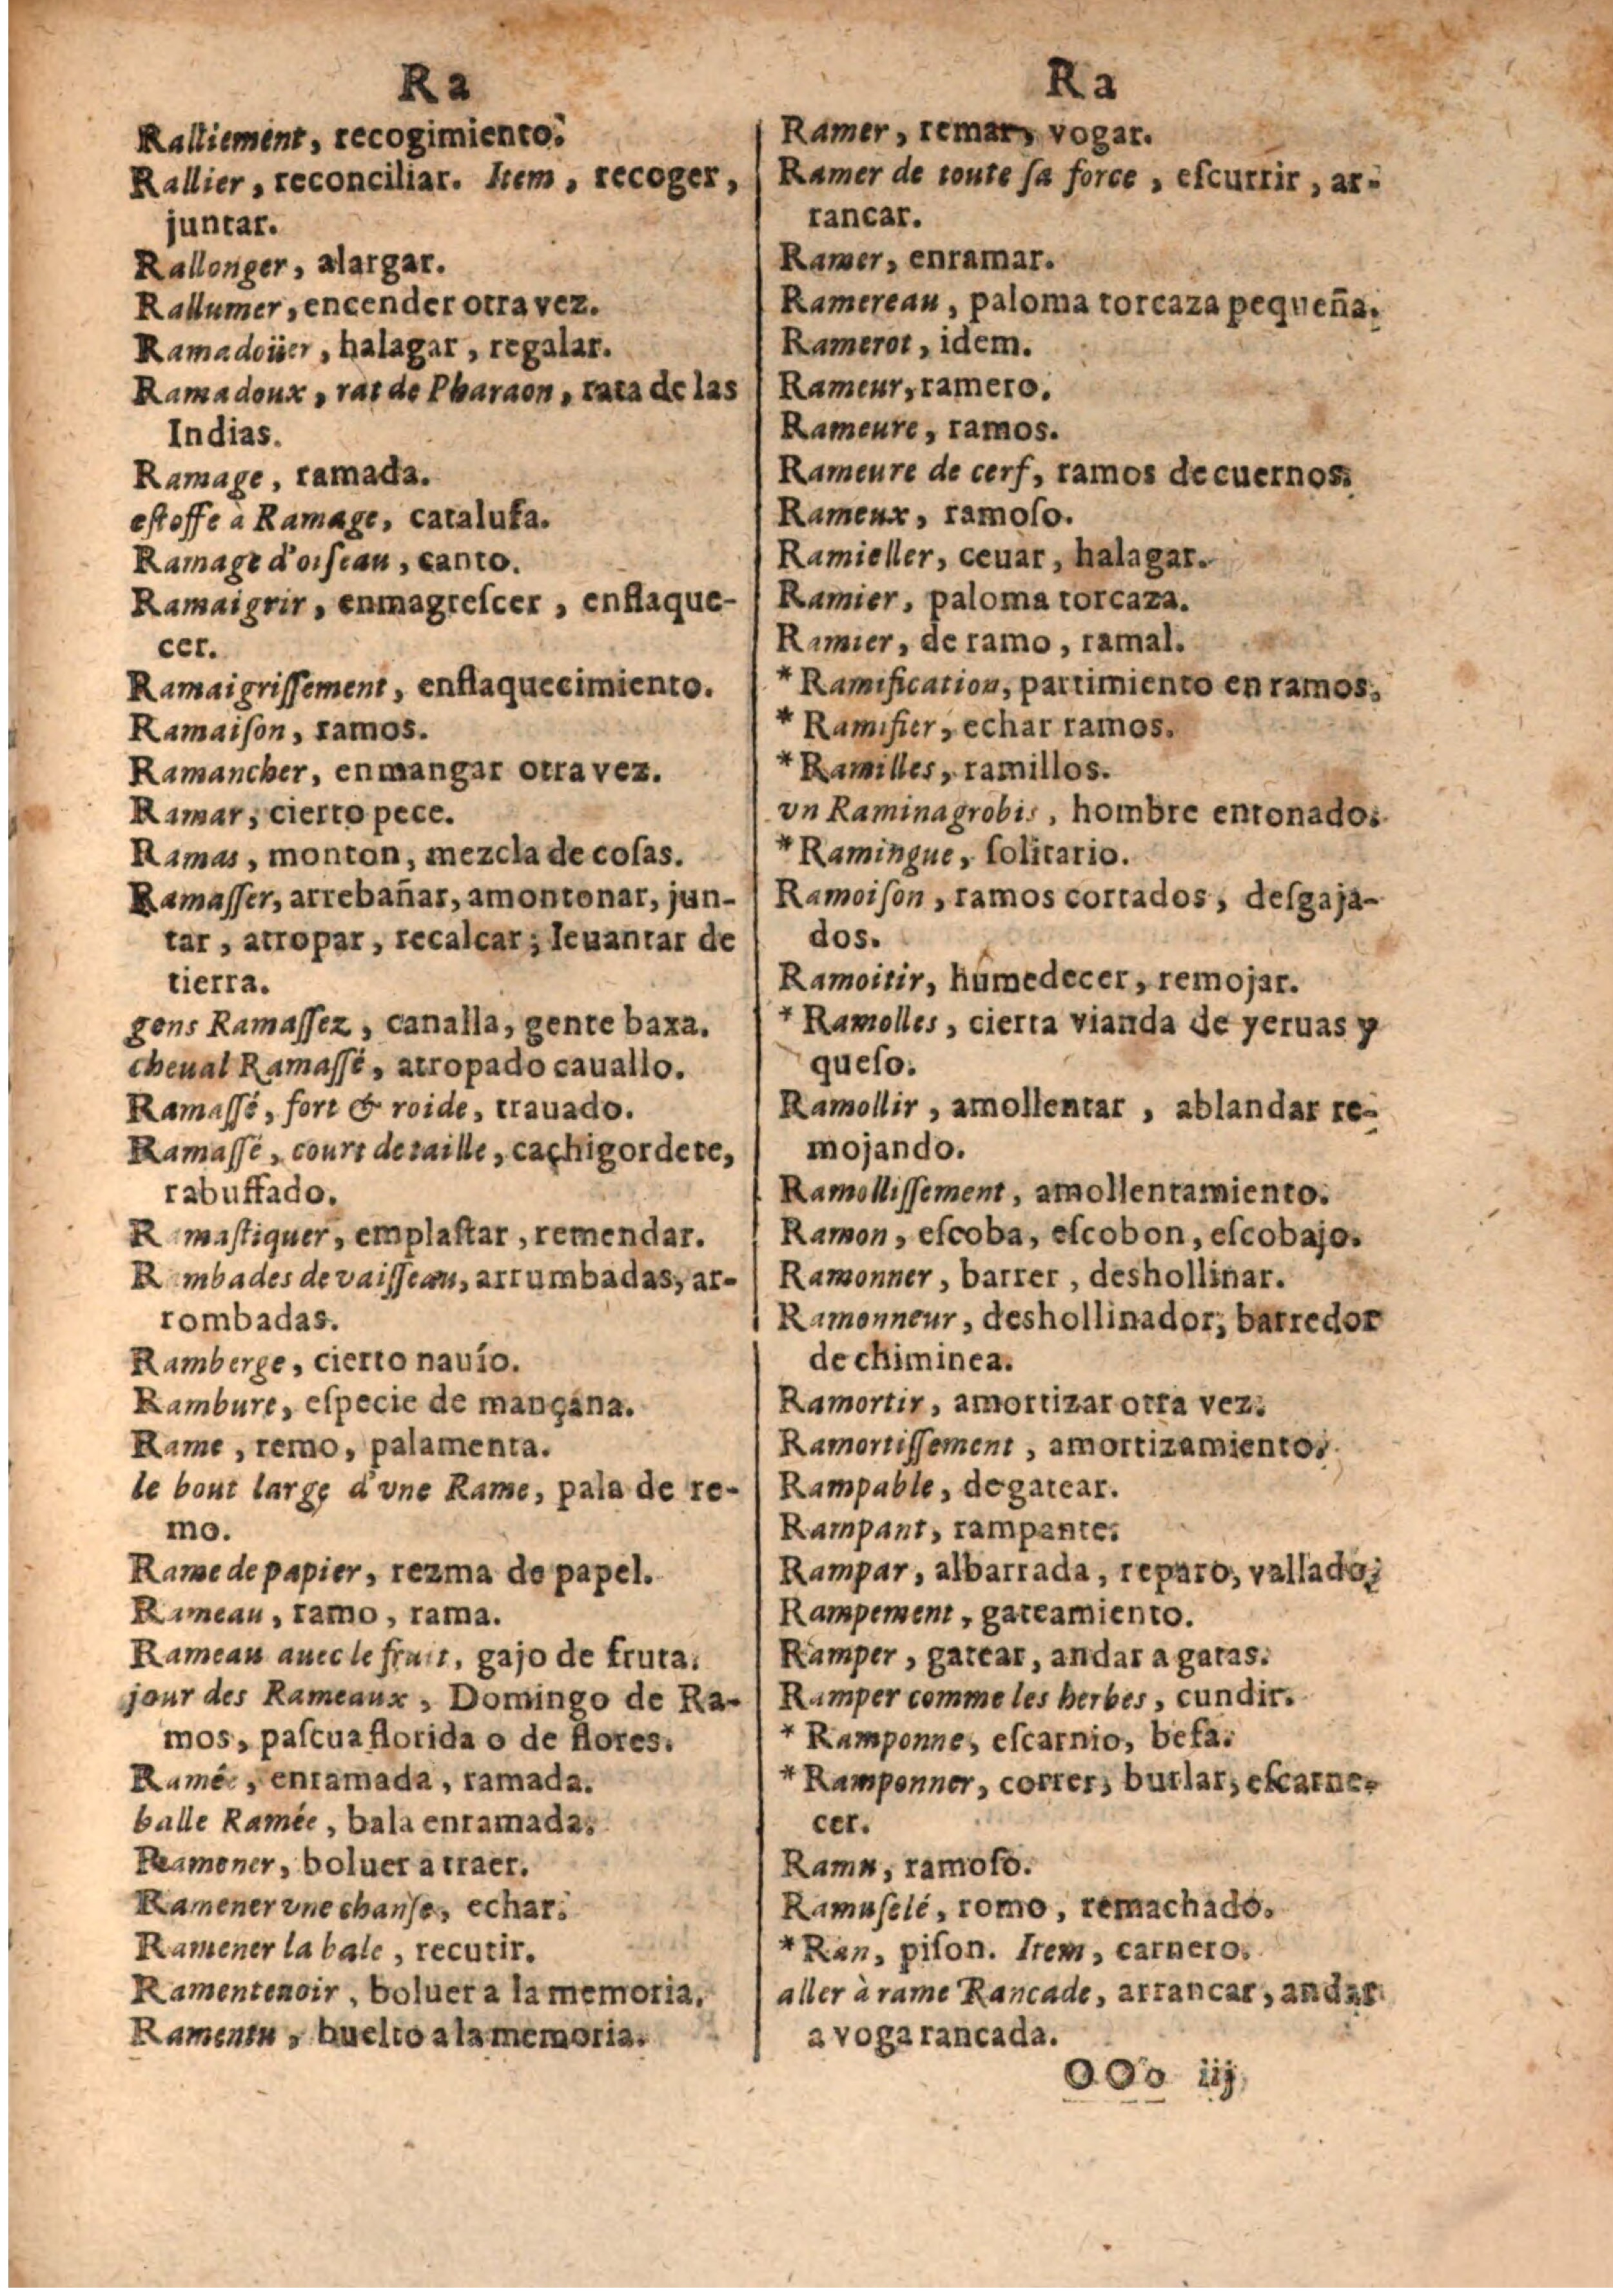 Ra
Ralliement, recogimiento.
Rallier, reconciliar. Item, recoger,
juntar.
Rallonger, alargar.
Rallumer, encender otra vez.
Ramadoüer, halagar, regalar.
Ramadoux, rat de Pharaon, rata de las
Indias.
Ramage, ramada.
eſtoffe à Ramage, catalufa.
Ramage d'oiſeau, canto.
Ramaigrir, enmagreſcer, enflaque-
cer.
Ramaigriſſement, enflaquecimiento.
Ramaiſon, ramos.
Ramancher, enmangar otra vez.
Ramar, cierto pece.
Ramas, monton, mezcla de coſas.
Ramaſſer, arrebañar, amontonar, jun-
tar, atropar, recalcar; leuantar de
tierra.
gens Ramaſſez, canalla, gente baxa.
cheual Ramaſſé, atropado cauallo.
Ramaſſé, fort & roide, trauado.
Ramaſſé, court de taille, caçhigordete,
rabuffado.
Ramaſtiquer, emplaſtar, remendar.
Rambades de vaiſſeau, arrumbadas, ar-
rombadas.
Ramberge, cierto nauío.
Rambure, eſpecie de mançana.
Rame, remo, palamenta.
le bout large d'vne Rame, pala de re-
mo.
Rame de papier, rezma de papel.
Rameau, ramo, rama.
Rameau auec le fruit, gajo de fruta.
jour des Rameaux, Domingo de Ra-
mos, paſcua florida o de flores.
Ramée, enramada, ramada.
balle Ramée, bala enramada.
Ramener, boluer a traer.
Ramener vne chanſe, echar.
Ramener la bale, recutir.
Ramenteuoir, boluer a la memoria.
Ramentu, buelto a la memoria.
Ra
Ramer, remar, vogar.
Ramer de toute ſa force, eſcurrir, ar-
rancar.
Ramer, enramar.
Ramereau, paloma torcaza pequeña.
Ramerot, idem.
Rameur, ramero.
Rameure, ramos.
Rameure de cerf, ramos de cuernos.
Rameux, ramoſo.
Ramieller, ceuar, halagar.
Ramier, paloma torcaza.
Ramier, de ramo, ramal.
*Ramification, partimiento en ramos.
*Ramifier, echar ramos.
*Ramilles, ramillos.
vn Raminagrobis, hombre entonado.
*Ramingue, ſolitario.
Ramoiſon, ramos cortados, deſgaja-
dos.
Ramoitir, humedecer, remojar.
*Ramolles, cierta vianda de yeruas y
queſo.
Ramollir, amollentar, ablandar re-
mojando.
Ramolliſſement, amollentamiento.
Ramon, eſcoba, eſcobon, eſcobajo.
Ramonner, barrer, deshollinar.
Ramonneur, deshollinador, barredor
de chiminea.
Ramortir, amortizar otra vez.
Ramortiſſement, amortizamiento.
Rampable, de gatear.
Rampant, rampante.
Rampar, albarrada, reparo, vallado.
Rampement, gateamiento.
Ramper, gatear, andar a gatas.
Ramper comme les herbes, cundir.
*Ramponne, eſcarnio, befa.
*Ramponner, correr, burlar, eſcarne-
cer.
Ramu, ramoſo.
Ramuſelé, romo, remachado.
*Ran, piſon. Item, carnero.
aller à rame Rancade, arrancar, andar
a voga rancada.
OOo iij